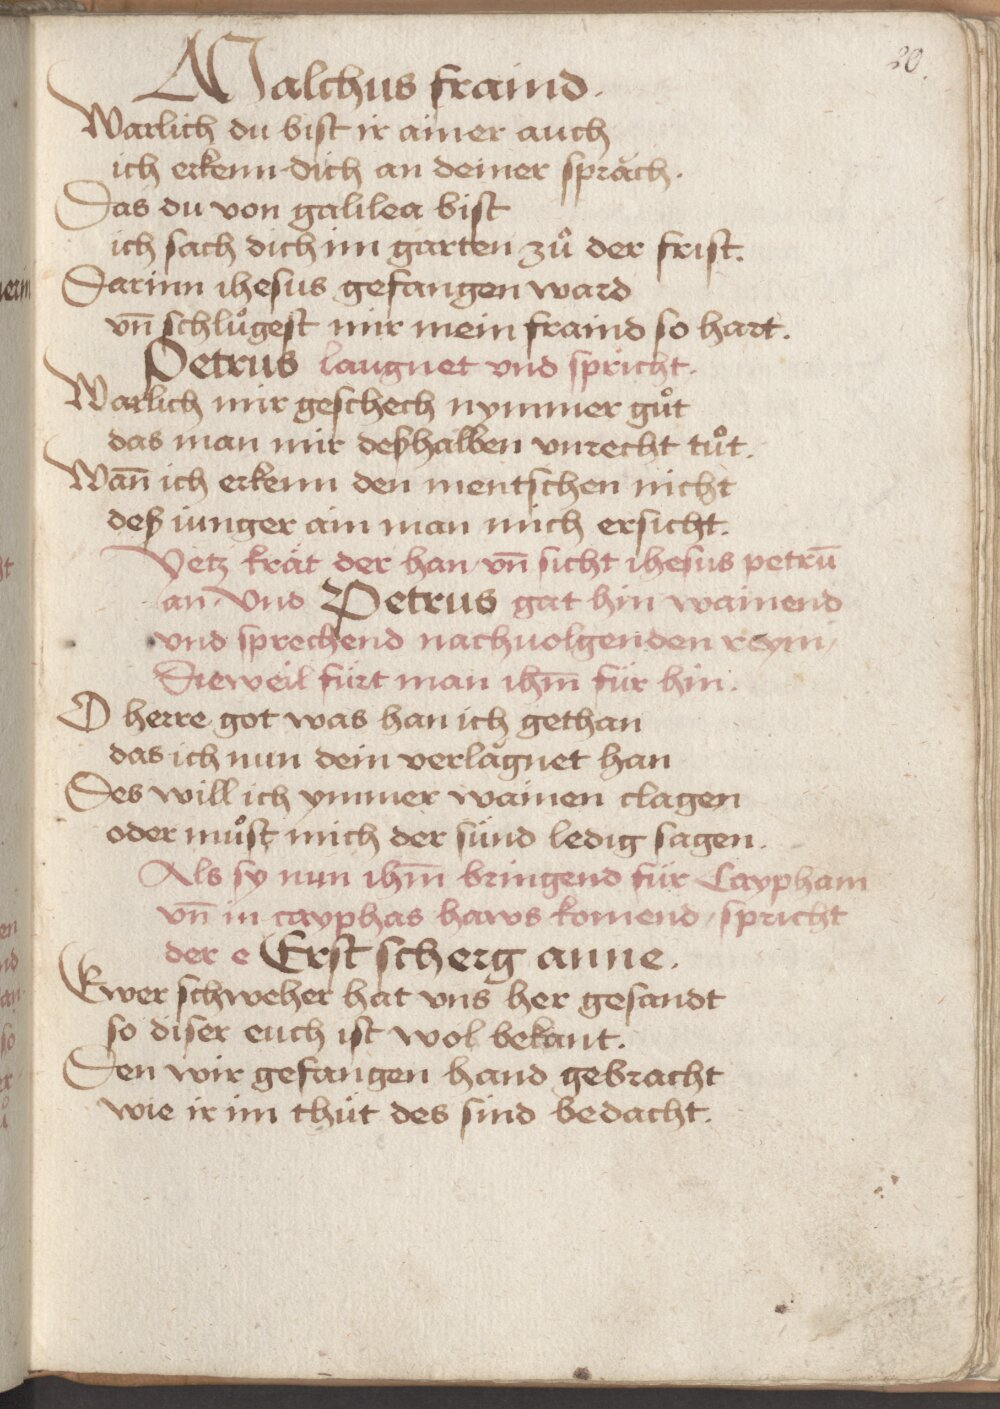 20.
Malchus fraind.
Warlich du bist ir ainer auch
ich erkenn dich an deiner sprách.
Das du von galilea bist
ich sach dich im garten zů der frist.
Darinn ihesus gefangen ward
vn̄ schlůgest mir mein fraind so hart.
Petrus laugnet vnd spricht.
Warlich mir geschech nymmer gůt
das man mir deßhalben vnrecht tůt.
Wan̄ ich erkenn den mentschen nicht
deß iunger ain man mich ersicht.
Yetz krät der han vn̄ sicht ihesus petrū
an. Vnd Petrus gat hin wainend
vnd sprechend nachuolgenden reym,
Dieweil fürt man ihm̄ für hin.
O herre got was han ich gethan
das ich nun dein verlågnet han
Des will ich ymmer wainen clagen
oder můst mich der sünd ledig sagen.
Als sy nun ihm̄ bringend für Caypham
vn̄ in cayphas haws komend, spricht
der e Erst scherg anne.
Ewer schweher hat vns her gesandt
so diser euch ist wol bekant.
Den wir gefangen hand gebracht
wie ir im thüt des sind bedacht.